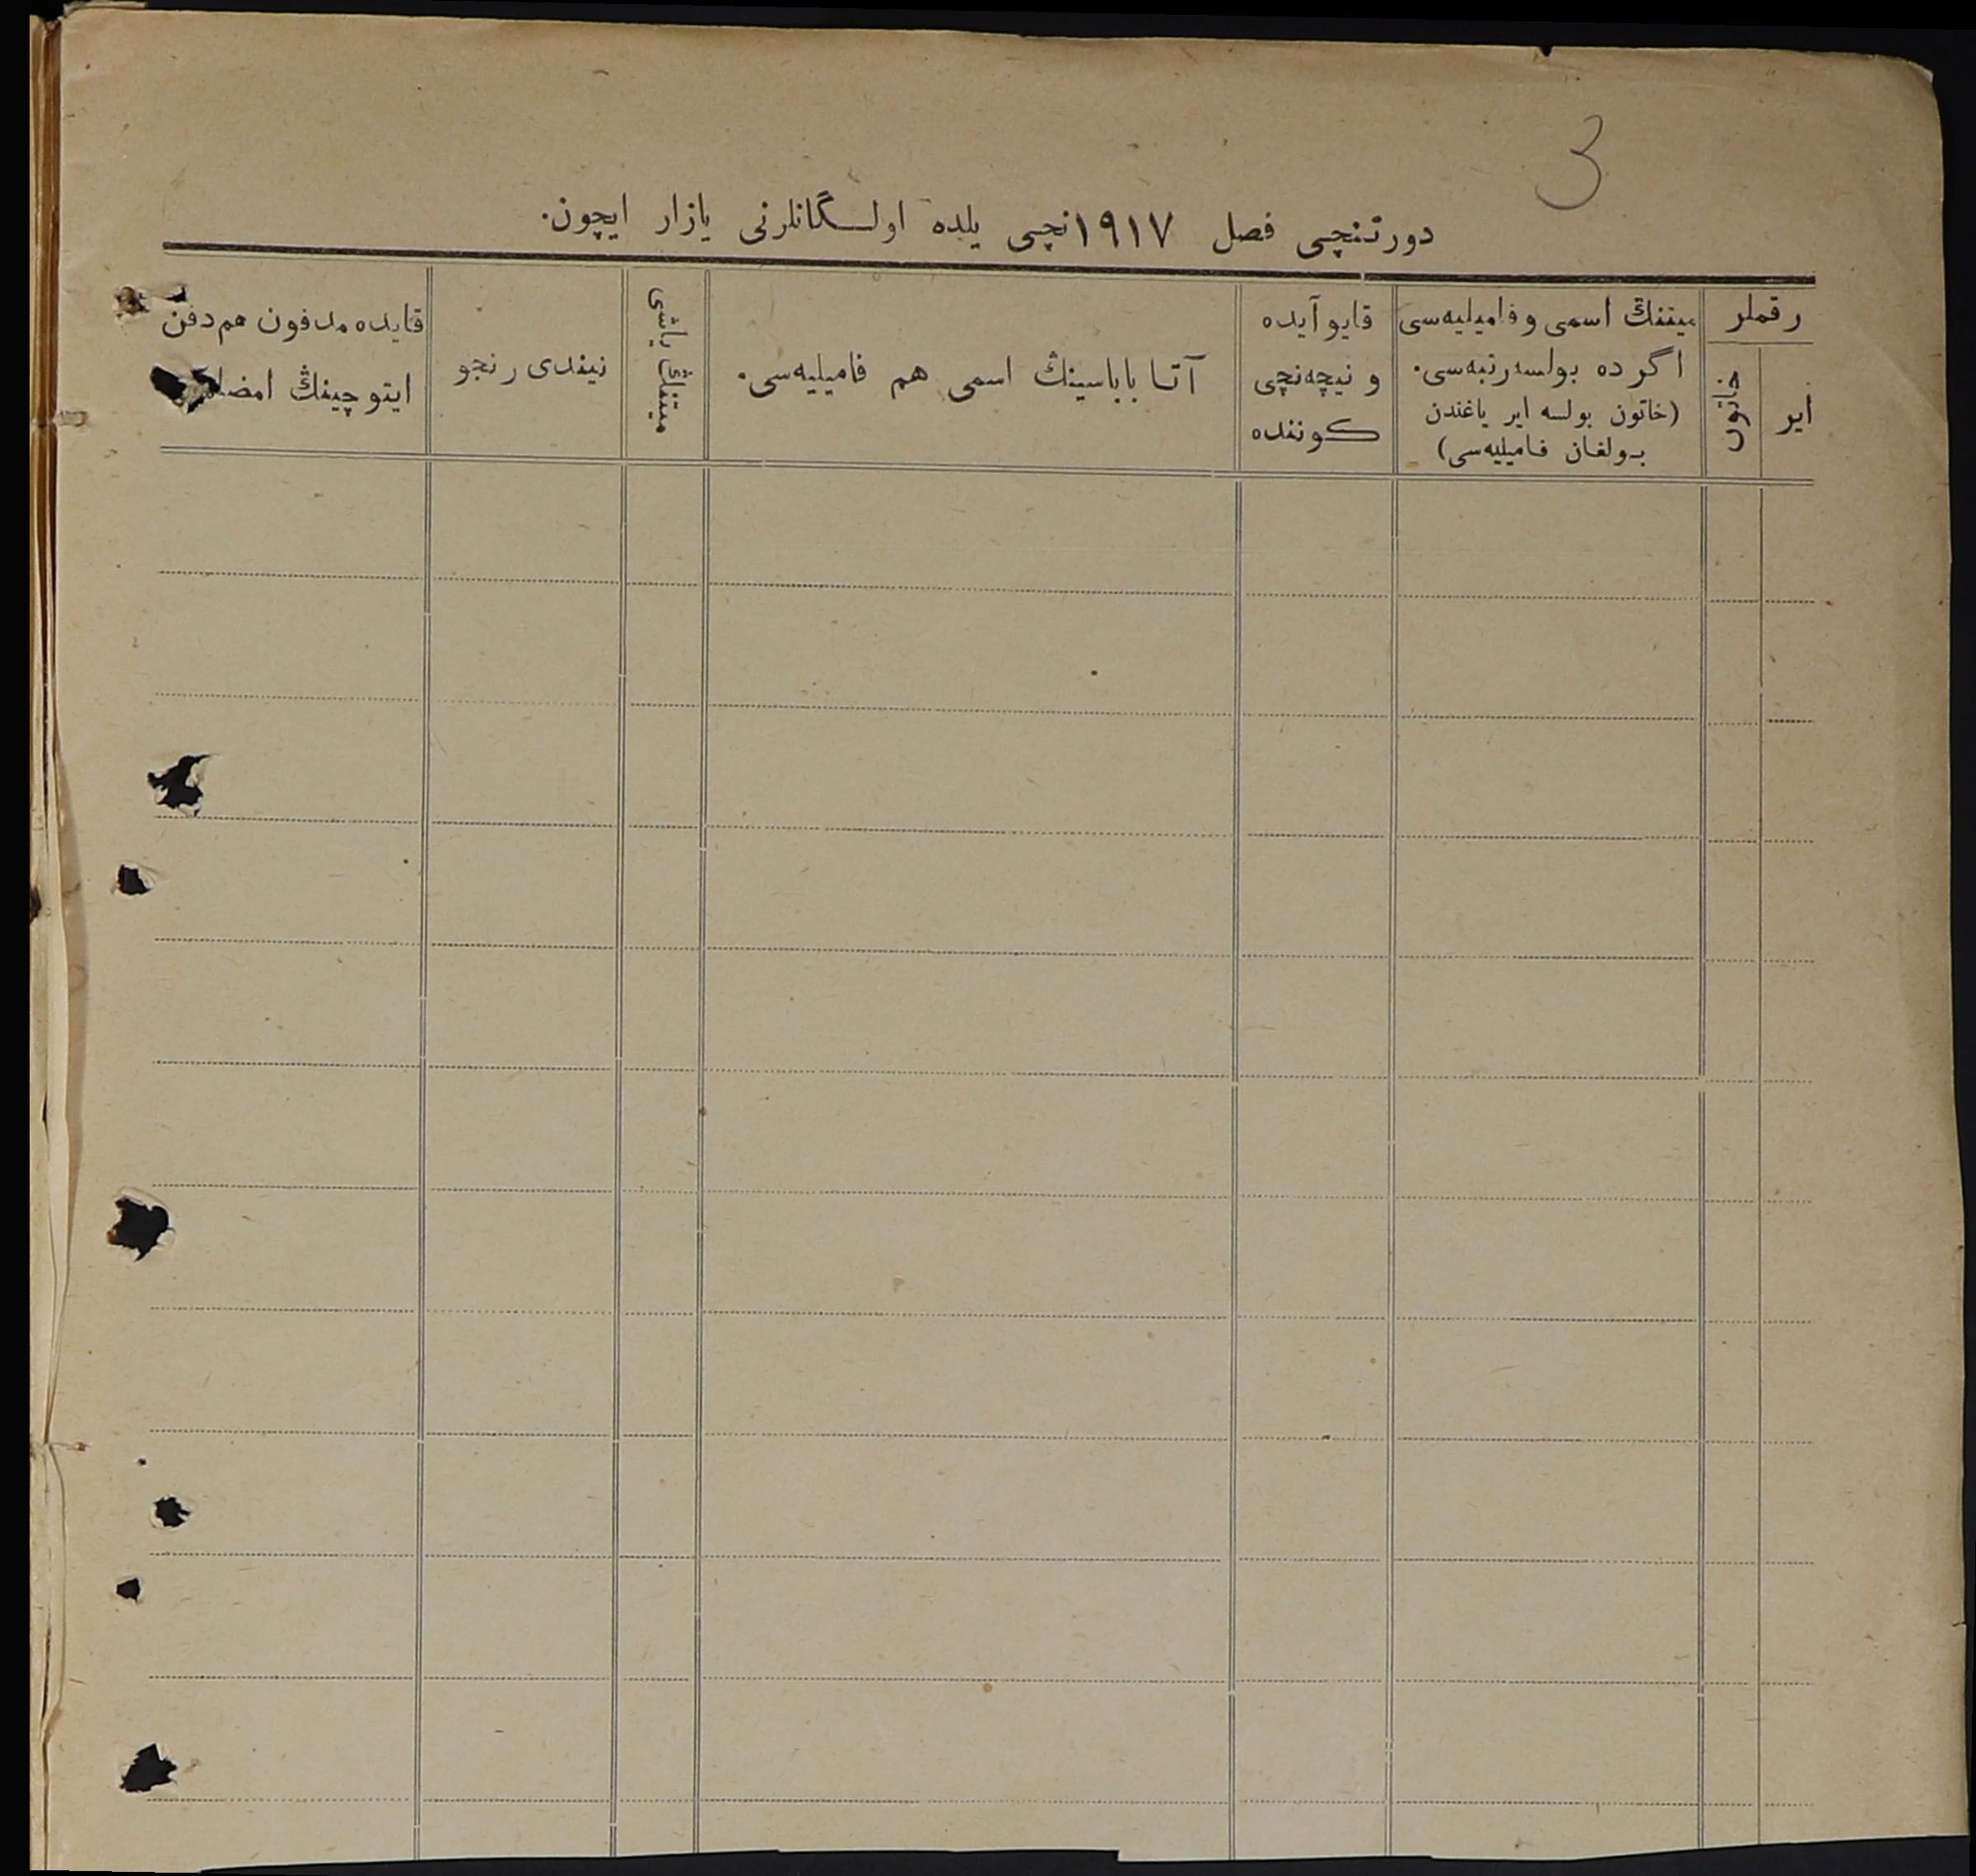 3
دورتنچی فصل ۱۹۱۷نچی یلده اولـگانلرنی یازار ایچون.
رقملر
ایر
خاتون
میتنڭ اسمی و فامیلیه‌سی
اگر ده بولسه رتبه‌سی.
(خاتون بولسه ایر یاغندن
بولغان فامیلیه‌سی)
قایو آیده
و نیچه‌نچی
كوننده
آتا باباسینڭ اسمی هم فامیلیه‌سی.
میتنڭ یاشی
نیندی رنجو
قایده مدفون هم دفن
ایتوچینڭ